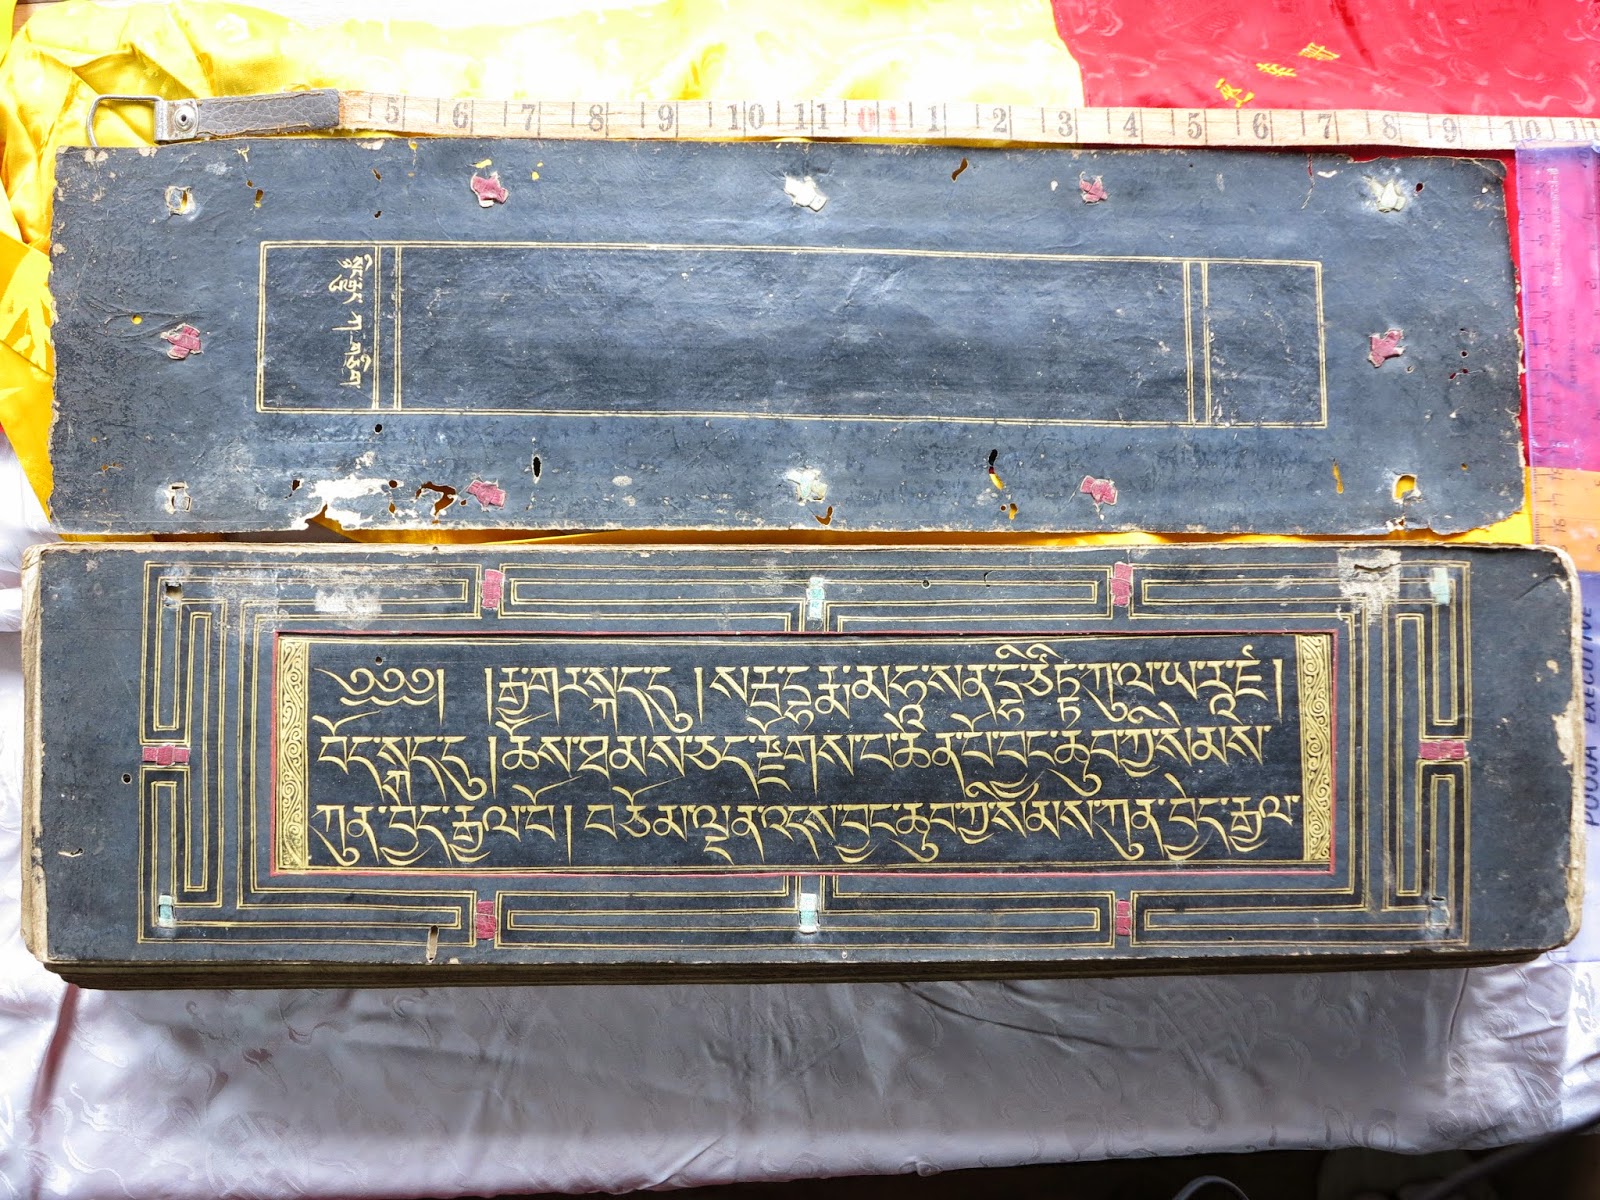 5 6 7 8 9 10 11 01 1 2 3 4 5 6 7 8 9 10 11
ཀ གཅིག
༄༅། །རྒྱ་གར་སྐད་དུ། སརྦ་དྷརྨ་མ་ཧཱ་སན་དྷི་ཙིཏྟ་ཀུ་ལ་ཡ་རཱ་ཛ།
བོད་སྐད་དུ། ཆོས་ཐམས་ཅད་རྫོགས་པ་ཆེན་པོ་བྱང་ཆུབ་ཀྱི་སེམས་
ཀུན་བྱེད་རྒྱལ་པོ། བཅོམ་ལྡན་འདས་བྱང་ཆུབ་ཀྱི་སེམས་ཀུན་བྱེད་རྒྱལ་
POOJA EXECUTIVE